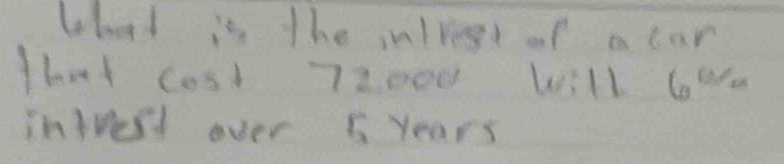 What is the intrest of a car
that cost 72000 will 6%
intrest over 5 years